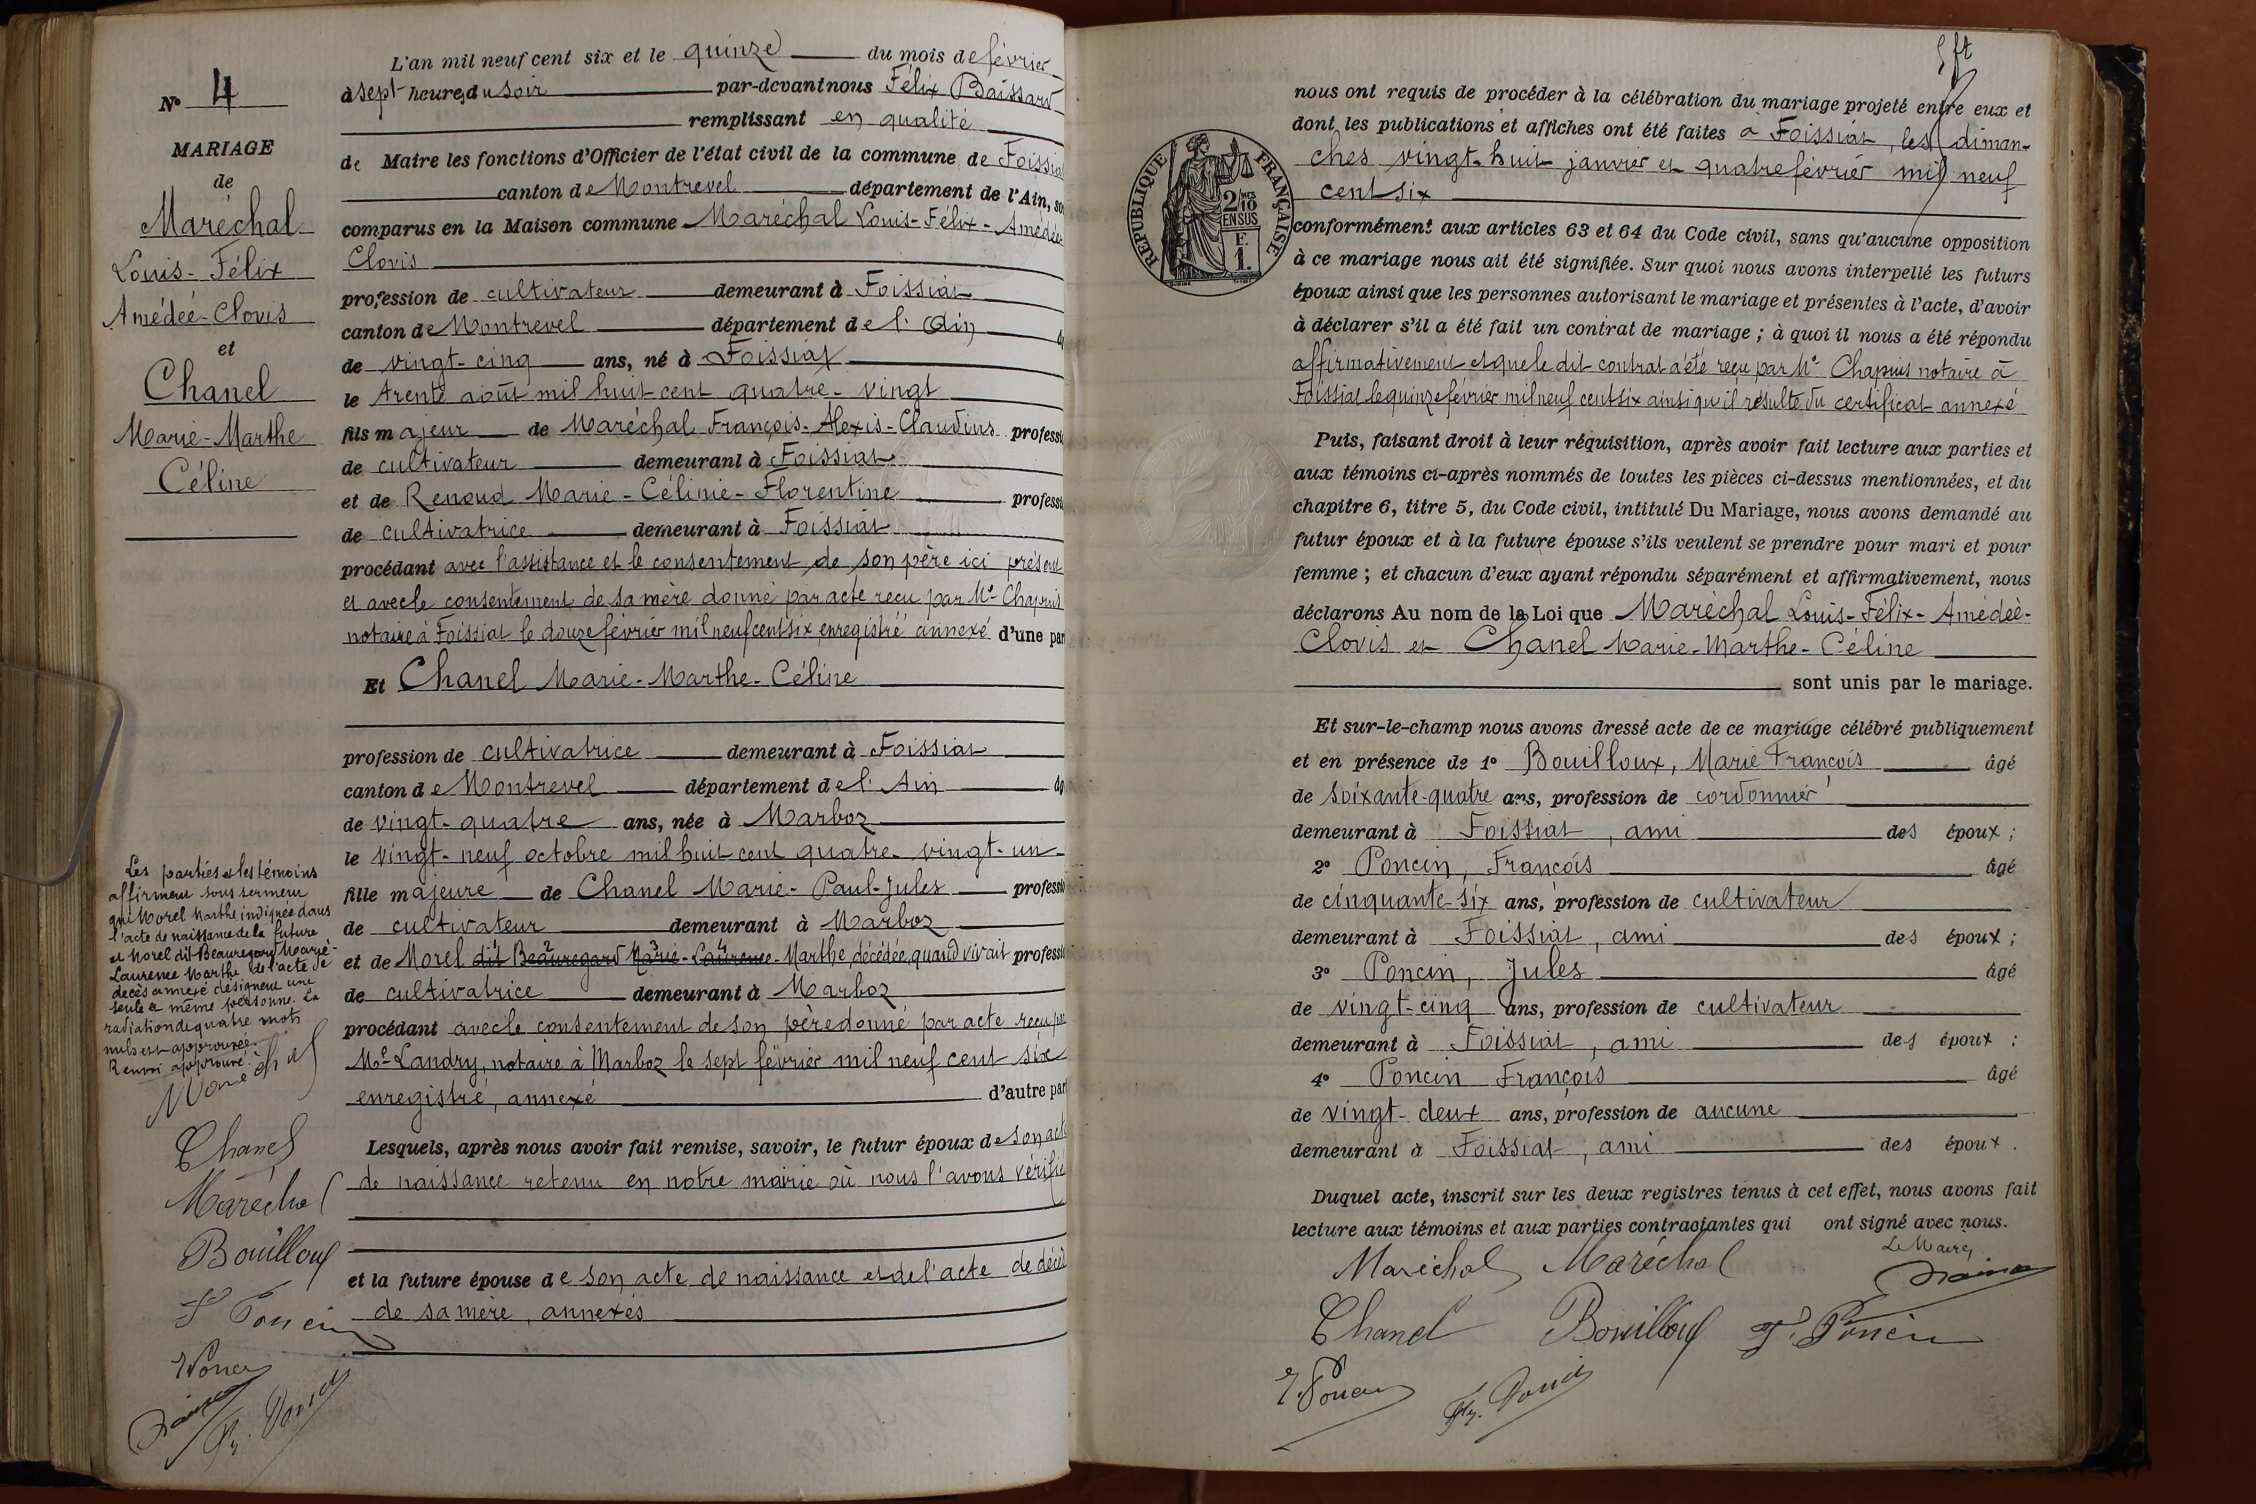 L'an mil neuf cent six et le quinze du mois de février
à sept heures du soir par-devant nous Félix Baissard
remplissant en qualité
de Maire les fonctions d'Officier de l'état civil de la commune de Foissiat
canton de Montrevel département de l'Ain, so
comparus en la Maison commune Maréchal Louis-Félix-Amédée
Clovis
profession de cultivateur demeurant à Foissiat
canton de Montrevel département de l'Ain
de vingt-cinq ans, né à Foissiat
le trente août mil huit cent quatre-vingt
fils majeur de Maréchal François-Alexis-Claudius professi
de cultivateur demeurant à Foissiat
et de Renoud Marie-Célinie-Florentine professi
de cultivatrice demeurant à Foissiat
procédant avec l'assistance et le consentement de son père ici présent
et avec le consentement de sa mère donné par acte reçu par Me Chapuis
notaire à Foissiat le douze février mil neuf cent six, enregistré annexé d'une par
Et Chanel Marie-Marthe-Céline
profession de cultivatrice demeurant à Foissiat
canton de Montrevel département de l'Ain
de vingt-quatre ans, née à Marboz
le vingt-neuf octobre mil huit cent quatre-vingt-un
fille majeure de Chanel Marie-Paul-Jules professio
de cultivateur demeurant à Marboz
et de Morel dit Beauregard Marie-Laurence-Marthe, décédée, quand vivait professi
de cultivatrice demeurant à Marboz
procédant avec le consentement de son père donné par acte reçu par
Me Landry, notaire à Marboz le sept février mil neuf cent six
enregistré, annexé d'autre par
Lesquels, après nous avoir fait remise, savoir, le futur époux de son acte
de naissance retenu en notre mairie où nous l'avons vérifié
et la future épouse de son acte de naissance et de l'acte de décès
de sa mère, annexés
No 4
MARIAGE
de
Maréchal
Louis-Félix
Amédéé-Clovis
et
Chanel
Marie-Marthe
Céline
Les parties et les témoins
affirment sous serment
que Morel Marthe indiquée dans
l'acte de naissance de la future
et Morel dit Beauregard Marie-
Laurence Marthe de l'acte de
décès annexé désignent une
seule et même personne. La
radiation de quatre mots
nuls est approuvée.
Renvoi approuvé.
Maréchal
Chanel
Maréchal
Bouilloux
F Poncin
J Poncin
Fs. Poncin
nous ont requis de procéder à la célébration du mariage projeté entre eux et
dont les publications et affiches ont été faites à Foissiat, les diman-
ches vingt-huit janvier et quatre février mil neuf
cent six
REPUBLIQUE FRANÇAISE
2/10
EN SUS
F.
1.
conformément aux articles 63 et 64 du Code civil, sans qu'aucune opposition
à ce mariage nous ait été signifiée. Sur quoi nous avons interpellé les futurs
époux ainsi que les personnes autorisant le mariage et présentes à l'acte, d'avoir
à déclarer s'il a été fait un contrat de mariage ; à quoi il nous a été répondu
affirmativement et que le dit contrat a été reçu par Me Chapuis notaire à
Foissiat le quinze février mil neuf cent six ainsi qu'il résulte du certificat annexé
Puis, faisant droit à leur réquisition, après avoir fait lecture aux parties et
aux témoins ci-après nommés de toutes les pièces ci-dessus mentionnées, et du
chapitre 6, titre 5, du Code civil, intitulé Du Mariage, nous avons demandé au
futur époux et à la future épouse s'ils veulent se prendre pour mari et pour
femme ; et chacun d'eux ayant répondu séparément et affirmativement, nous
déclarons Au nom de la Loi que Maréchal Louis-Félix-Amédéé-
Clovis et Chanel Marie-Marthe-Céline
sont unis par le mariage.
Et sur-le-champ nous avons dressé acte de ce mariage célébré publiquement
et en présence de 1o Bouilloux, Marie François âgé
de soixante-quatre ans, profession de cordonnier
demeurant à Foissiat, ami des époux ;
2o Poncin, François âgé
de cinquante-six ans, profession de cultivateur
demeurant à Foissiat, ami des époux ;
3o Poncin, Jules âgé
de vingt-cinq ans, profession de cultivateur
demeurant à Foissiat, ami des époux ;
4o Poncin François âgé
de vingt-deux ans, profession de aucune
demeurant à Foissiat, ami des époux.
Duquel acte, inscrit sur les deux registres tenus à cet effet, nous avons fait
lecture aux témoins et aux parties contractantes qui ont signé avec nous.
Le Maire,
Maréchal Maréchal
Chanel Bouilloux F. Poncin
J. Poncin Fs. Poncin